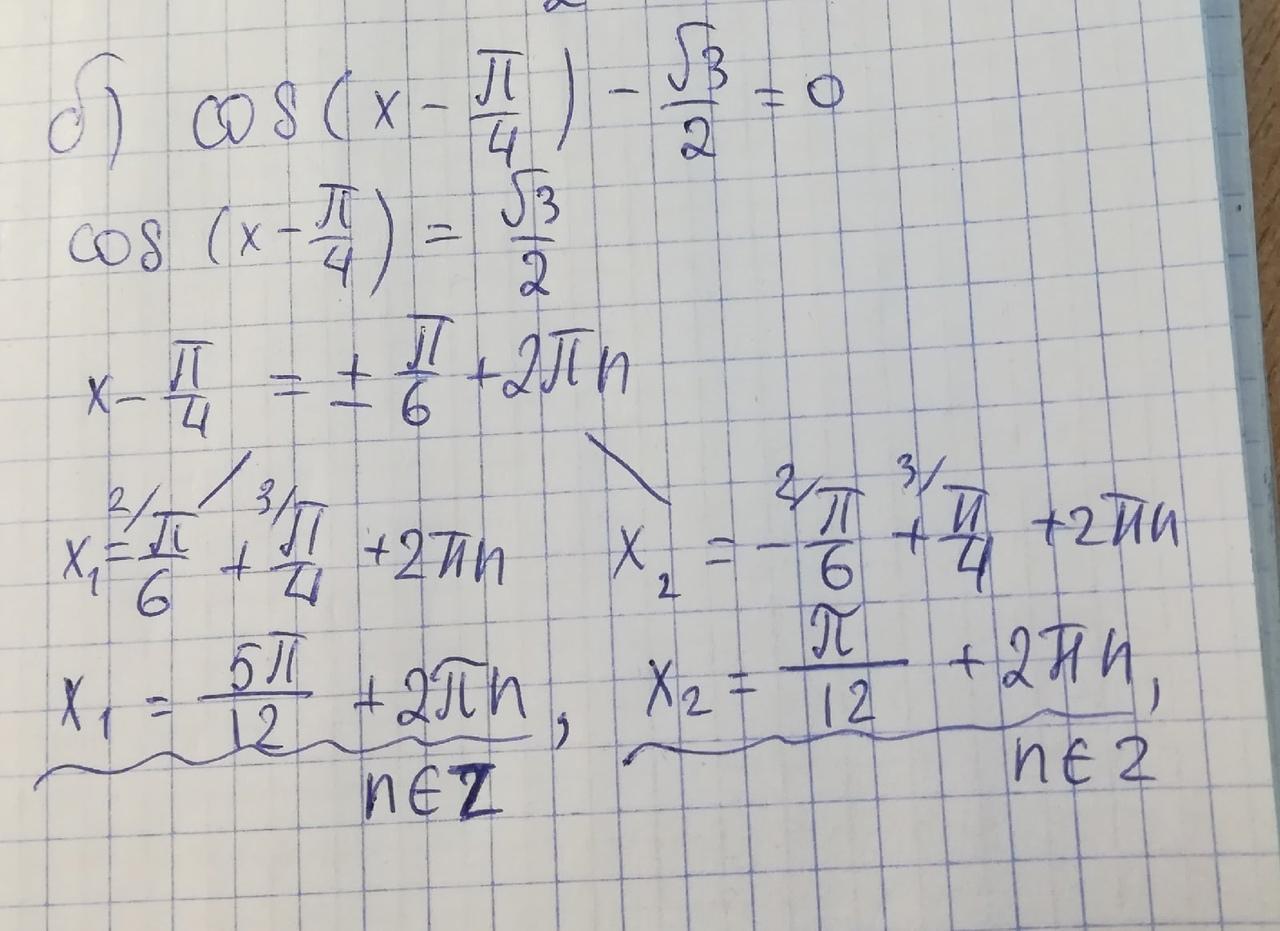 б) cos(x - π/4) - √3/2 = 0
cos (x - π/4) = √3/2
x - π/4 = ± π/6 + 2πn
x₁ = ²/π/6 + ³/π/4 + 2πn x₂ = - ²/π/6 + ³/π/4 + 2πn
x₁ = 5π/12 + 2πn, x₂ = π/12 + 2πn,
n ∈ Z n ∈ Z